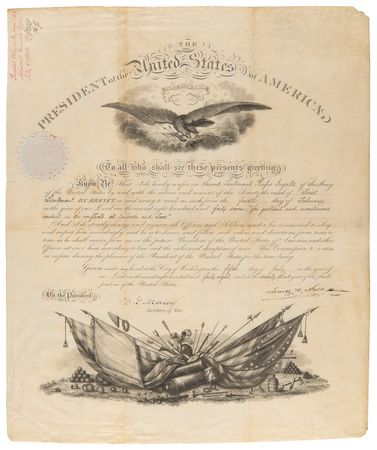 THE
PRESIDENT of the United States of AMERICA,
To all who shall see these presents greeting:
Know Ye, That I do hereby confer on Second Lieutenant of the Army
of the United States by and with the advice and consent of the Senate the rank of First
Lieutenant BY BREVET in said army to rank as such from the fourth day of February
in the year of our Lord one thousand eight hundred and forty seven, for gallant and meritorious
conduct in the conflicts at and Taos.
And I do strictly charge and require all Officers and Soldiers to obey
and respect him accordingly and he is to observe and follow such orders and directions from time to
time as he shall receive from me or the future President of the United States of America and other
Officers set over him according to law and the rules and discipline of War. This Commission to continue
in force during the pleasure of the President of the United States for the time being.
Given under my hand at the City of Washington this day of July in the year
of our Lord one thousand eight hundred and forty eight, and in the seventy third year of the Inde-
pendence of the United States.
By the President,
W. L. Marcy
Secretary of War.
James K. Polk